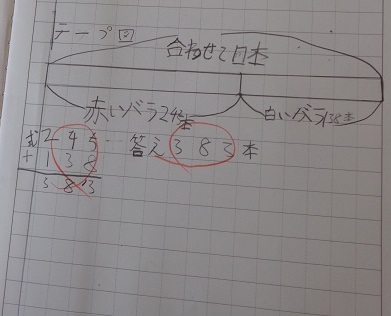 テープ図
合わせて□本
赤いバラ245本 白いバラ138本
式 245 答え383本
+138
383